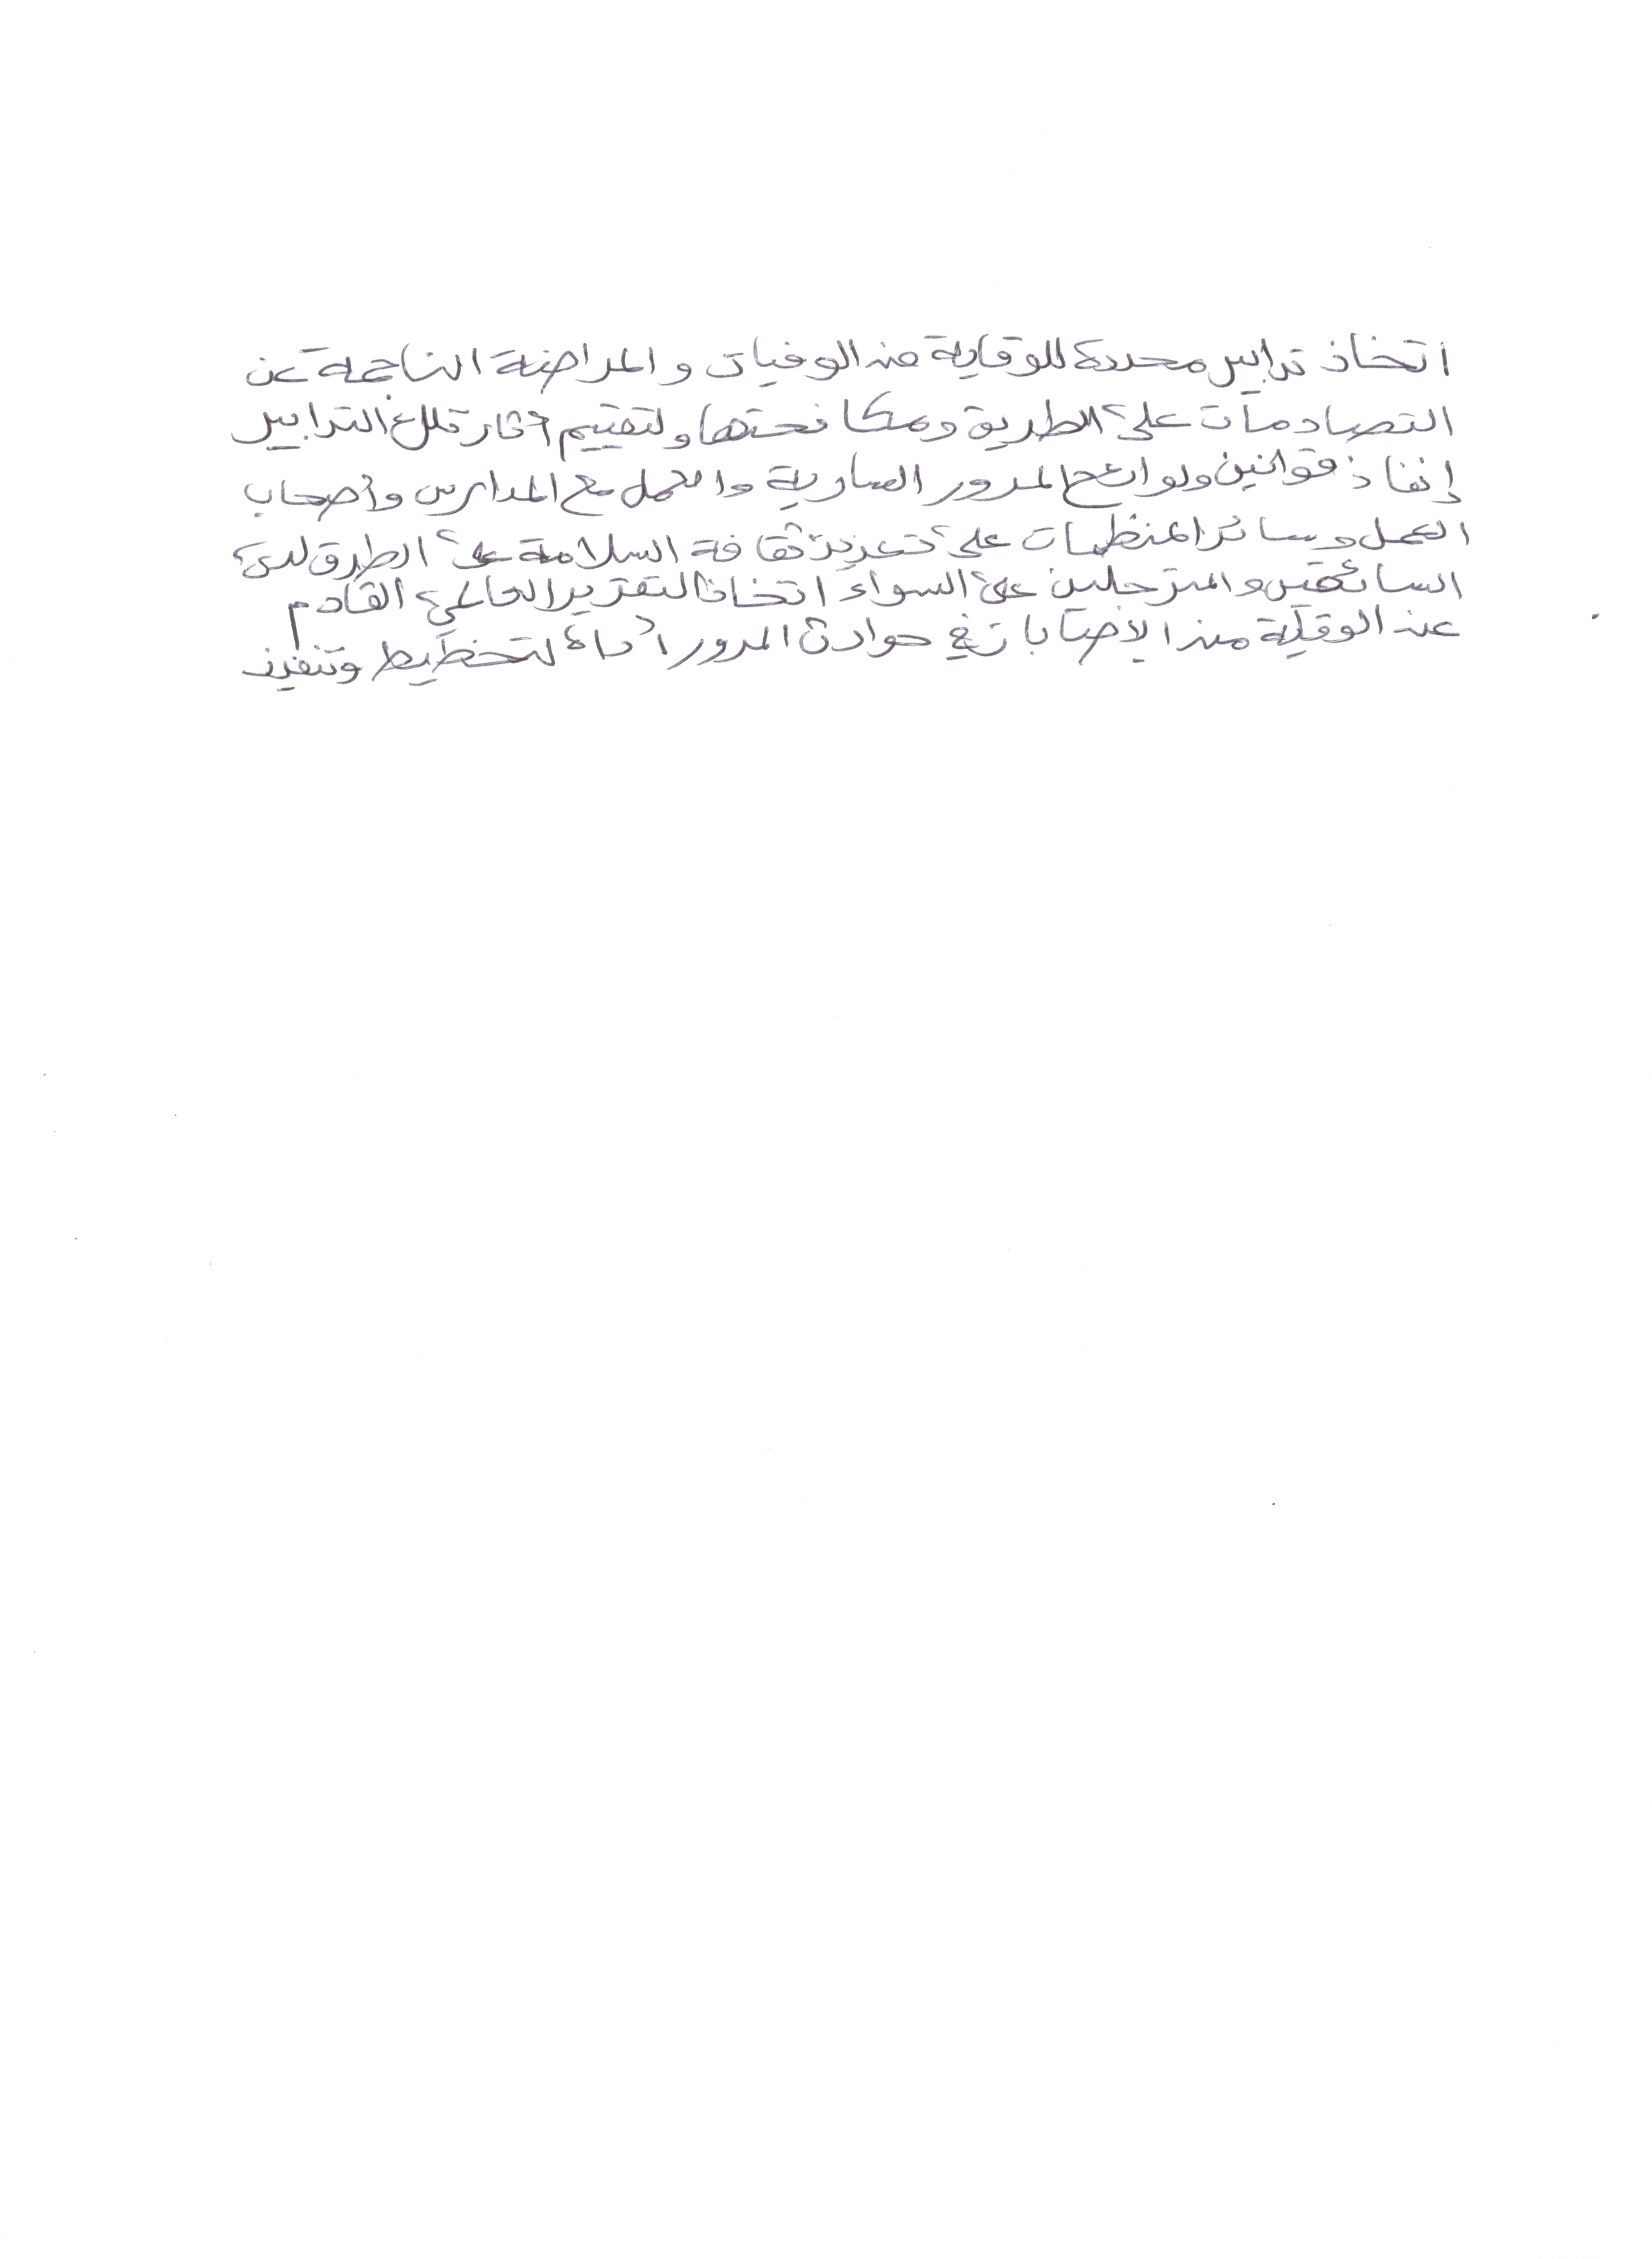 اتخاذ تدابير محددة للوقاية من الوفيات والمراضة الناجمة عن
التصادمات على الطريق ومكافحتها ولتقييم آثار تلك التدابير
إنفاذ قوانين ولوائح المرور السارية والعمل مع المدارس وأصحاب
العمل وسائر المنظمات على تعزيز ثقافة السلامة على الطرق لدى
السائقين والمترجلين على السواء اتخاذ التقرير العالمي القادم
عن الوقاية من الإصابات في حوادث المرور أداة لتخطيط وتنفيذ